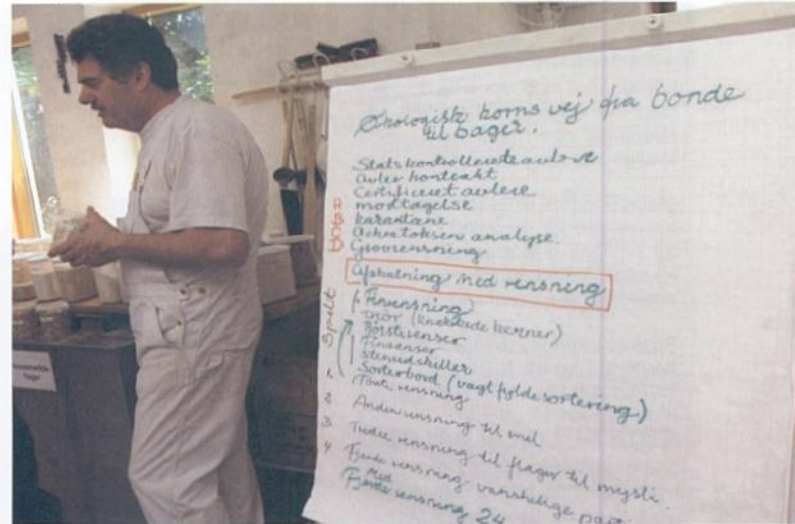 Økologisk korns vej fra bonde
til bager.
Statskontrollerede avlere
avler kontrakt
Certificeret avlere
A modtagelse
B karantæne
C Ockratoksin analyse.
D Grovrensning
Afskalning med rensning
Spelt
Finrensning
(knækkede kerner)
Børsterenser
Finrenser
stenudskiller
Sorterbord (vægtfyldesortering)
1. Første rensning
2. Anden rensning til mel
3. Tredie rensning til flager til mysli.
4. Fjerde rensning vanskelige
Fjerde rensning 24